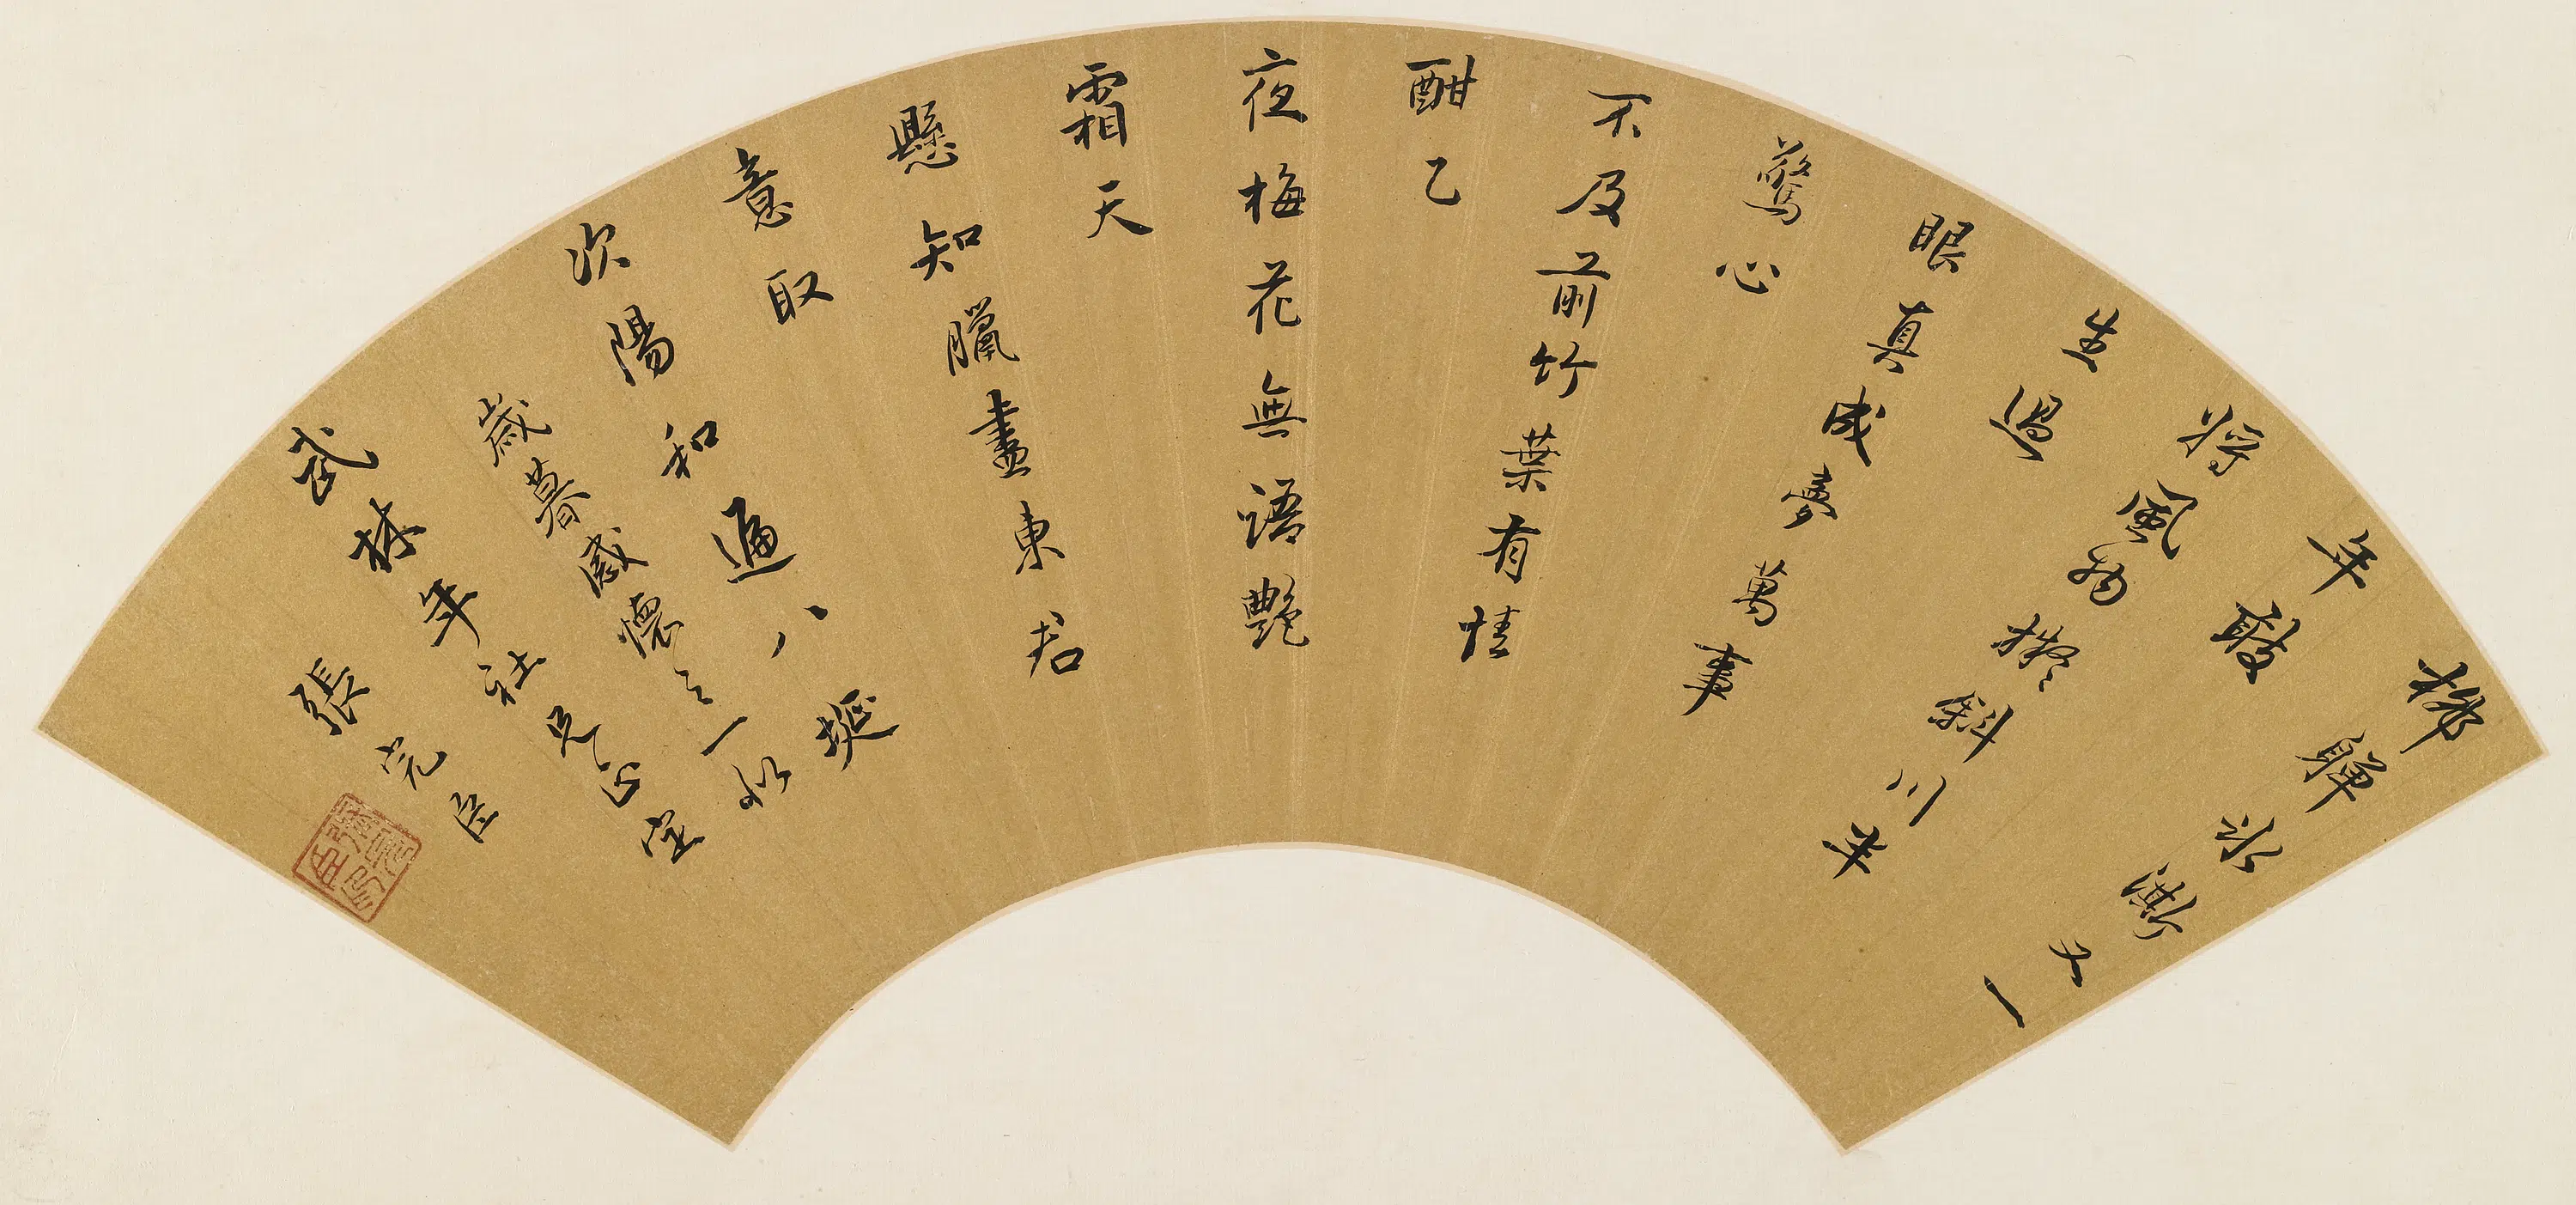 冰澌又一
年敢
将風物擬斜川半
生過
眼真成夢萬事
驚心
不及前竹葉有情
酣乙
夜梅花無語艷
霜天
懸知臘盡東君
意取
次陽和遍八埏
歲暮感懷之一似
武林年社兄正定
張完臣
張完臣印